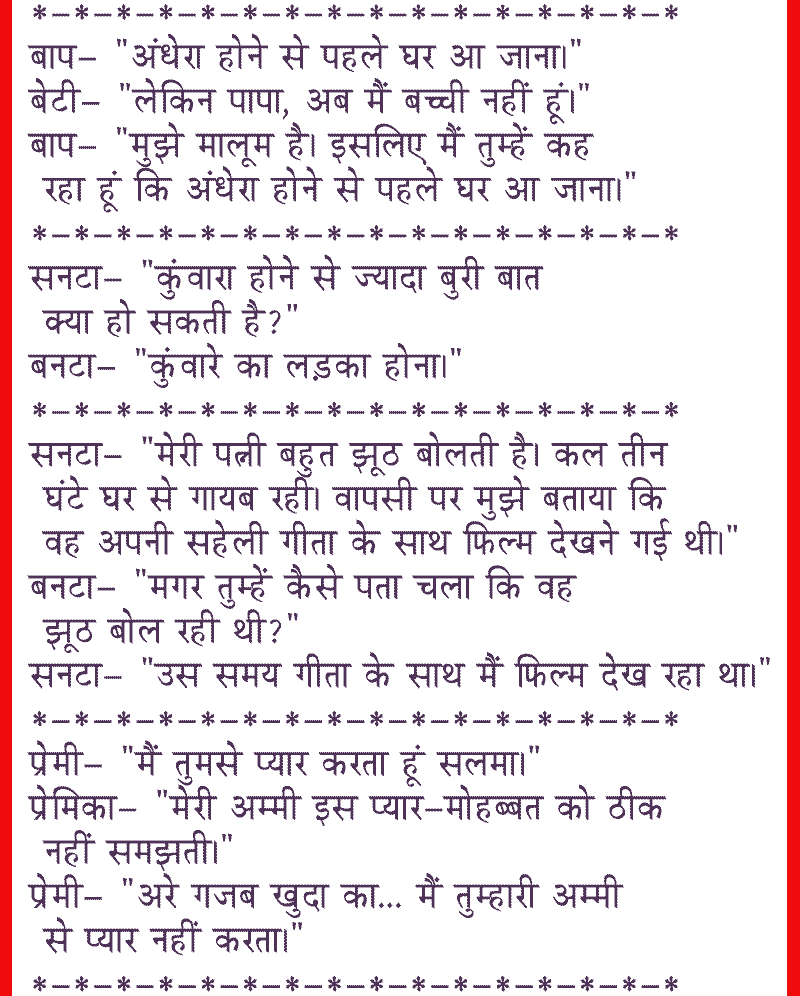 *–*–*–*–*–*–*–*–*–*–*–*–*–*–*–*
बाप– "अंधेरा होने से पहले घर आ जाना।"
बेटी– "लेकिन पापा, अब मैं बच्ची नहीं हूं।"
बाप– "मुझे मालूम है। इसलिए मैं तुम्हें कह
रहा हूं कि अंधेरा होने से पहले घर आ जाना।"
*–*–*–*–*–*–*–*–*–*–*–*–*–*–*–*
सनटा– "कुंवारा होने से ज्यादा बुरी बात
क्या हो सकती है?"
बनटा– "कुंवारे का लड़का होना।"
*–*–*–*–*–*–*–*–*–*–*–*–*–*–*–*
सनटा– "मेरी पत्नी बहुत झूठ बोलती है। कल तीन
घंटे घर से गायब रही। वापसी पर मुझे बताया कि
वह अपनी सहेली गीता के साथ फिल्म देखने गई थी।"
बनटा– "मगर तुम्हें कैसे पता चला कि वह
झूठ बोल रही थी?"
सनटा– "उस समय गीता के साथ मैं फिल्म देख रहा था।"
*–*–*–*–*–*–*–*–*–*–*–*–*–*–*–*
प्रेमी– "मैं तुमसे प्यार करता हूं सलमा।"
प्रेमिका– "मेरी अम्मी इस प्यार–मोहब्बत को ठीक
नहीं समझती।"
प्रेमी– "अरे गजब खुदा का... मैं तुम्हारी अम्मी
से प्यार नहीं करता।"
*–*–*–*–*–*–*–*–*–*–*–*–*–*–*–*